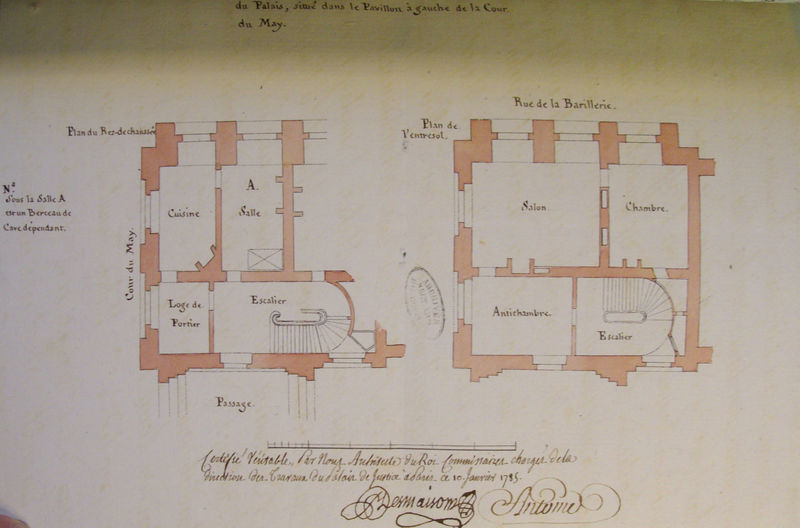 du Palais, situé dans le Pavillon à gauche de la Cour
du May.
Rue de la Barillerie.
Plan du Rez-de-chaussée
Plan de
l'entresol.
Nª
Sous la Salle A
est un Berceau de
Cave dépendant.
Cour du May.
Cuisine
A.
Salle
Loge de
Portier
Escalier
Passage.
Salon.
Chambre.
Antichambre.
Escalier
Certifié Véritable, Par Nous Architecte du Roi Commissaires chargés de la
direction des Travaux du Palais de Justice à Paris ce 10. Janvier 1785.
Desmaisons
Antoine